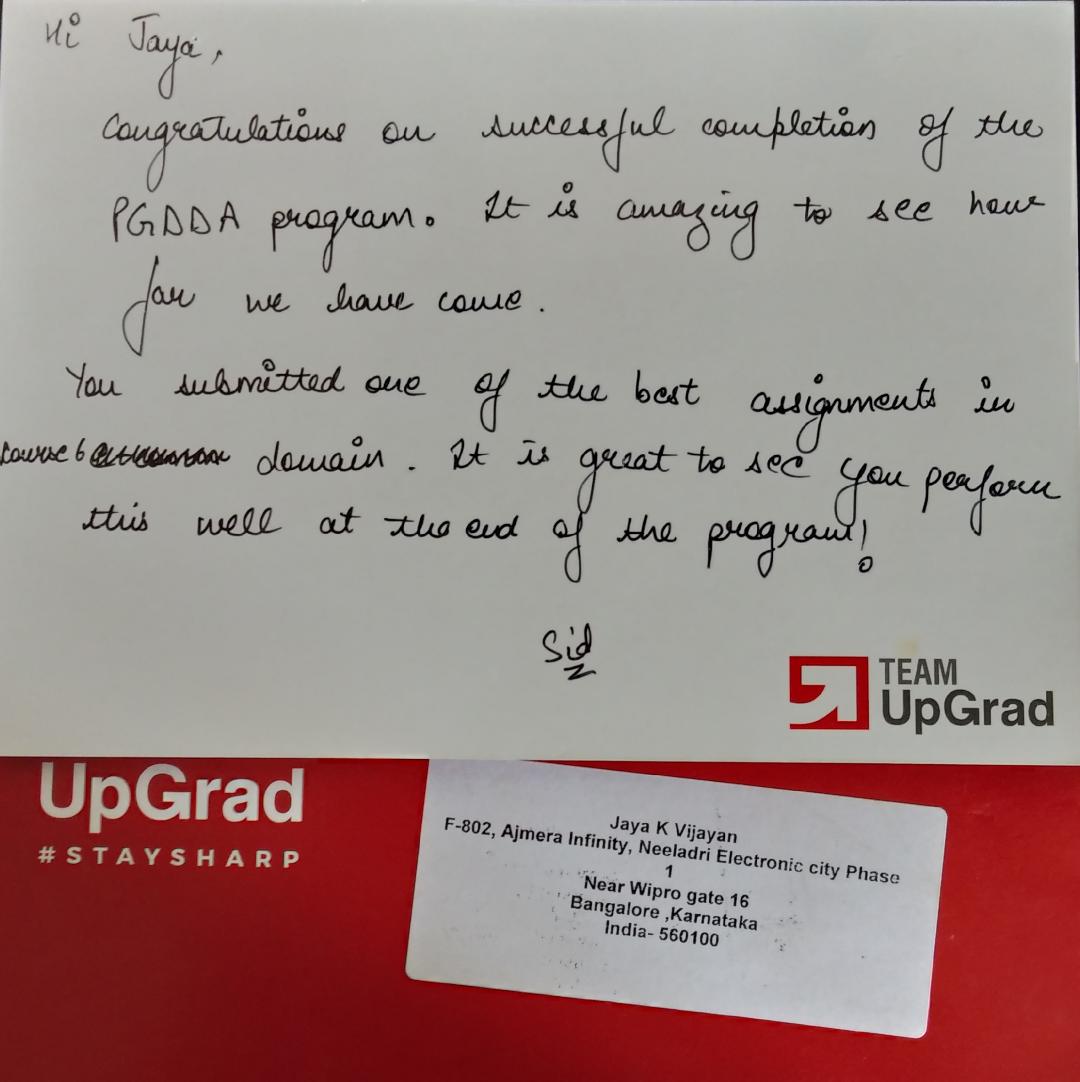 Hi Jaya,
Congratulations on successful completion of the
PGDDA program. It is amazing to see how
far we have come.
You submitted one of the best assignments in
course 6 domain. It is great to see you perform
this well at the end of the program!
Sid
TEAM
UpGrad
UpGrad
#STAYSHARP
Jaya K Vijayan
F-802, Ajmera Infinity, Neeladri Electronic city Phase
1
Near Wipro gate 16
Bangalore ,Karnataka
India- 560100